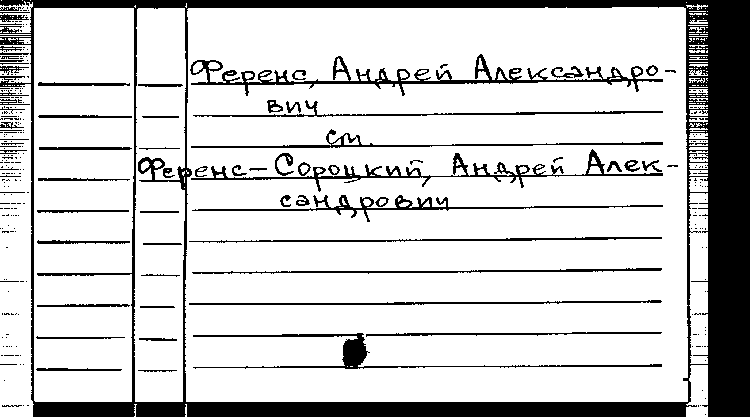 Ференс, Андрей Александро-
вич
см.
Ференс-Сороцкий, Андрей Алек-
сандрович